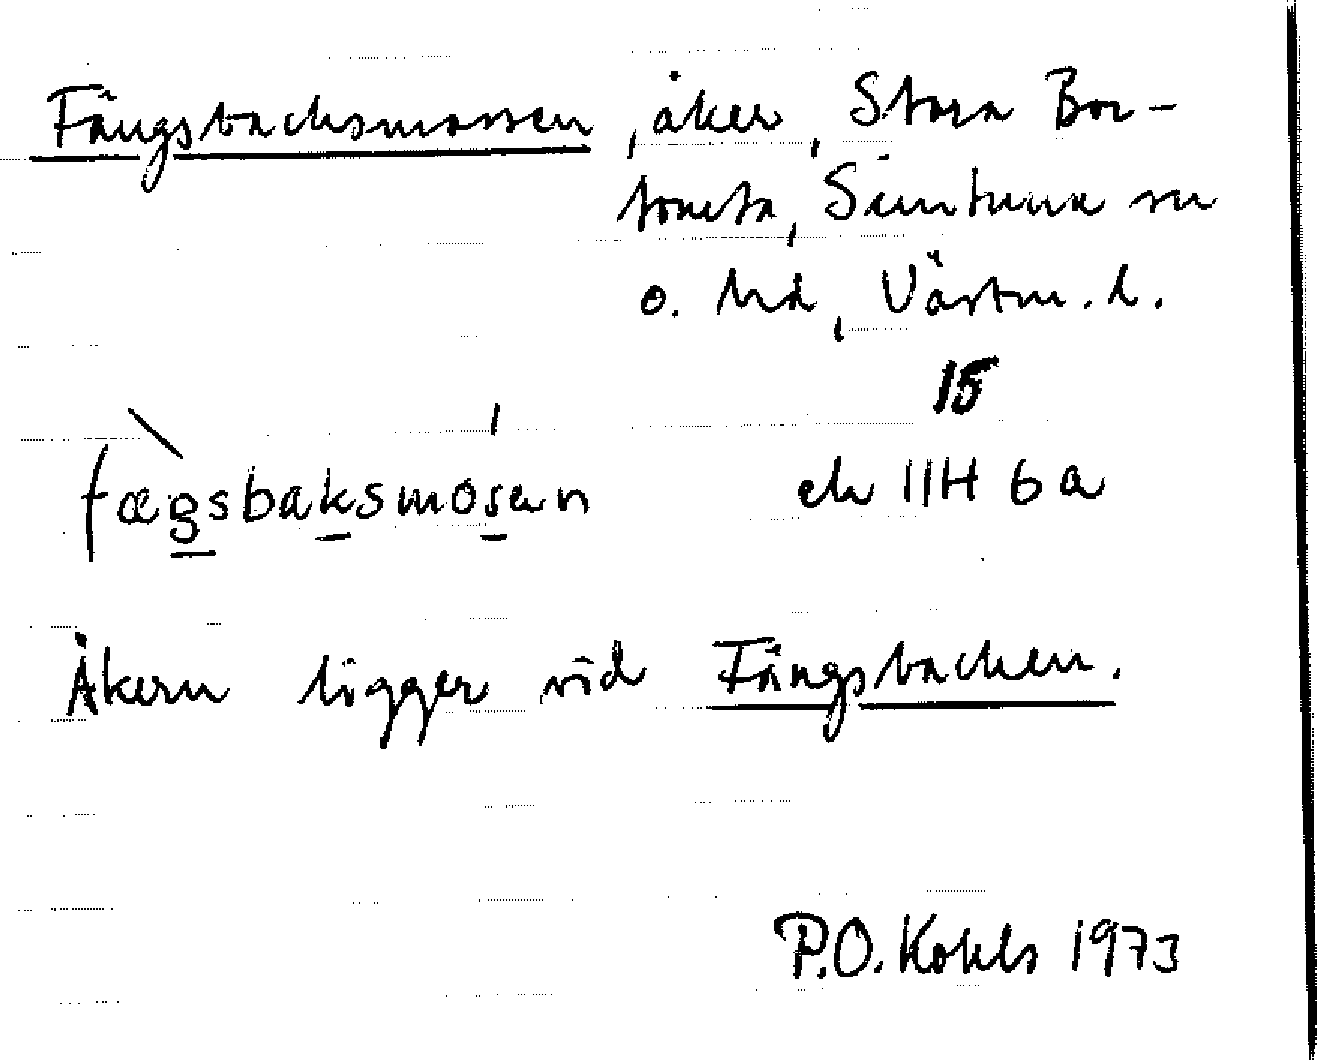 Fängsbacksmossen, åker, Stora Bor-
tomta, Simtuna sn
o. hd, Västm. l.
15
fægsbaksmosen ek 11H 6a
Åkern ligger vid Fängsbacken.
P.O. Kohls 1973